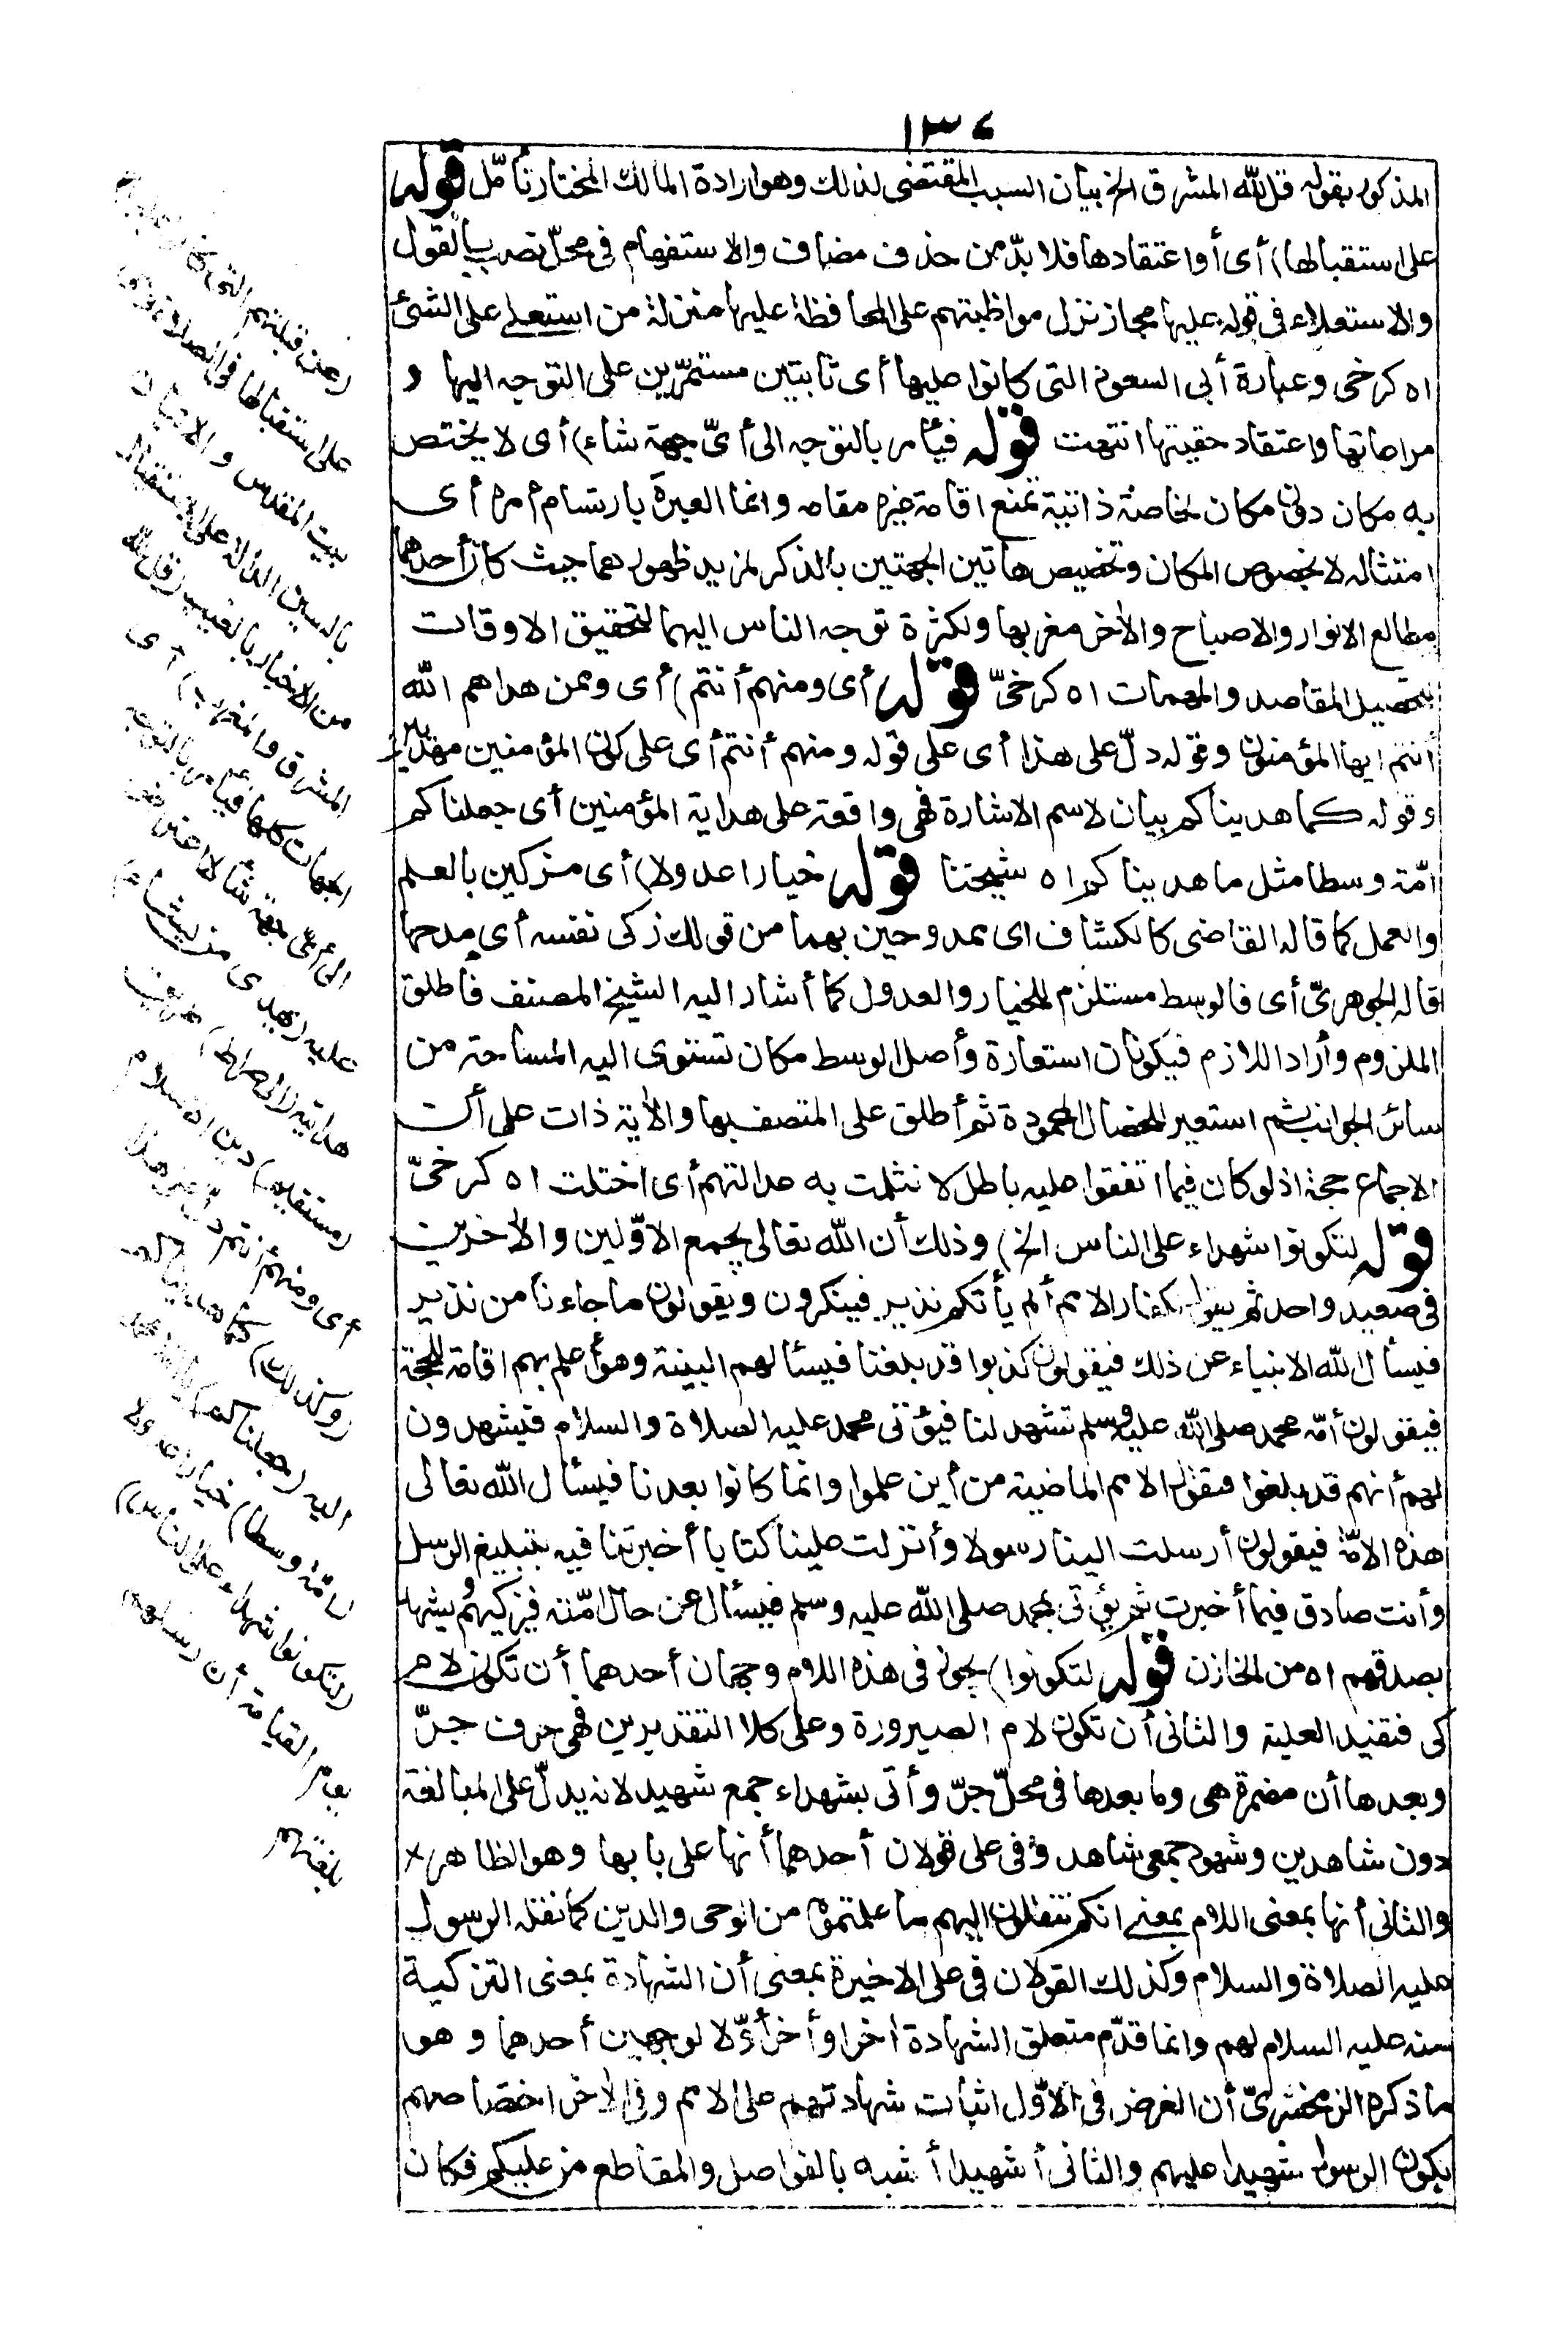 ١٣٤
المذكور بقوله قل لله المشرق الخ بيان السبب المقتضى لذلك وهو ارادة المالك المختار تأمّل قوله
على استقبالها) أى أو اعتقادها فلا بدّ من حذف مضاف والاستفهام فى محلّ نصب بالقول
والاستعلاء فى قوله عليها مجاز نزل مواظبتهم على المحافظة عليها منزلة من استعلى على الشئ
اه كرخى وعبارة أبى السعود التى كانوا عليها أى ثابتين مستمرّين على التوجه اليها و
مراعاتها واعتقاد حقيتها انتهت قوله فيأمر بالتوجه الى أىّ جهة شاء) أى لا يختص
به مكان دون مكان لخاصة ذاتية تمنع اقامة غيره مقامه وانما العبرة بارتسام أمره أى
امتثاله لا بخصوص المكان وتخصيص هاتين الجهتين بالذكر لمزيد ظهورهما حيث كان أحدهما
مطالع الانوار والاصباح والآخر مغربها ولكثرة توجه الناس اليهما لتحقيق الاوقات
لتحصيل المقاصد والمهمات اه كرخىّ قوله (أى ومنهم أنتم) أى وممن هداهم الله
أنتم ايها المؤمنون وقوله دلّ على هذا أى على قوله ومنهم أنتم أى على كون المؤمنين مهديين
وقوله كما هديناكم بيان لاسم الاشارة فهى واقعة على هداية المؤمنين أى جعلناكم
أمّة وسطا مثل ما هديناكم اه شيخنا قوله خيارا عدولا) أى مزكين بالعلم
والعمل كما قاله القاضى كالكشاف اى ممدوحين بهما من قولك زكى نفسه أى مدحها
قاله الجوهرىّ أى فالوسط مستلزم للخيار والعدول كما أشار اليه الشيخ المصنف فأطلق
الملزوم وأراد اللازم فيكونان استعارة وأصل الوسط مكان تستوى اليه المساحة من
سائر الجوانب ثم استعير للخصال المحمودة ثم أطلق على المتصف بها والآية ذات على أن
الاجماع حجة اذ لو كان فيما اتفقوا عليه باطل لانثلمت به عدالتهم أى اختلت اه كرخىّ
قوله لتكونوا شهداء على الناس الخ) وذلك أن الله تعالى يجمع الاوّلين والآخرين
فى صعيد واحد ثم يقول لكفار الامم ألم يأتكم نذير فينكرون ويقولون ما جاءنا من نذير
فيسأل الله الانبياء عن ذلك فيقولون كذبوا قد بلغنا فيسألهم البينة وهو أعلم بهم اقامة للحجة
فيقولون أمّة محمد صلى الله عليه وسلم تشهد لنا فيؤتى محمد عليه الصلاة والسلام فيشهدون
لهم أنهم قد بلغوا فتقول الامم الماضية من أين علموا وانما كانوا بعدنا فيسأل الله تعالى
هذه الامّة فيقولون أرسلت الينا رسولا وأنزلت علينا كتابا أخبرتنا فيه بتبليغ الرسل
وأنت صادق فيما أخبرت ثم يؤتى بمحمد صلى الله عليه وسلم فيسأل عن حال امّته فيزكيهم ويشهد
بصدقهم اه من الخازن قوله لتكونوا) يجوز فى هذه اللام وجهان أحدهما أن تكون لام
كى فتفيد العلية والثانى أن تكون لام الصيرورة وعلى كلا التقديرين فهى حرف جرّ
وبعدها أن مضمرة هى وما بعدها فى محلّ جرّ وأتى بشهداء جمع شهيد لانه يدلّ على المبالغة
دون شاهدين وشهود جمعى شاهد وفى على قولان أحدهما أنها على بابها وهو الظاهر
والثانى أنها بمعنى اللام بمعنى انكم تنقلون اليهم ما علمتموه من الوحى والدين كما نقله الرسول
عليه الصلاة والسلام وكذلك القولان فى على الاخيرة بمعنى أن الشهادة بمعنى التزكية
منه عليه السلام لهم وانما قدّم متعلق الشهادة آخرا وأخر أوّلا لوجهين أحدهما وهو
ما ذكره الزمخشرىّ أن الغرض فى الاوّل اثبات شهادتهم على الامم وفى الآخر اختصاصهم
بكون الرسول شهيدا عليهم والثانى أن شهيدا أشبه بالفواصل والمقاطع من عليكم فكان
عن قبلتهم التى كانوا
على استقبالها فى الصلاة وهى
بيت المقدس والاتيان
بالسين الدالة على الاستقبال
من الاخبار بالغيب (قل لله
المشرق والمغرب) أى
الجهات كلها فيأمر بالتوجه
الى أىّ جهة شاء لا اعتراض
عليه (يهدى من يشاء)
هدايته (الى صراط) طريق
(مستقيم) دين الاسلام
أى ومنهم أنتم دلّ على هذا
(وكذلك) كما هديناكم
اليه (جعلناكم)
(أمّة وسطا) خيارا عدولا
(لتكونوا شهداء على الناس)
يوم القيامة أن رسلهم
بلغتهم